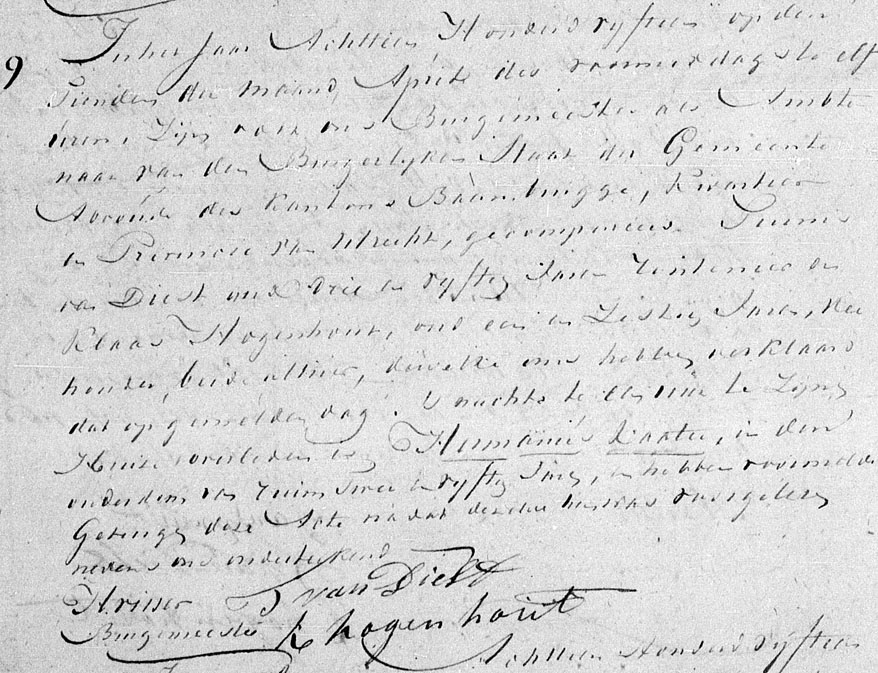 9
In het Jaar Achttien Honderd vyftien op den
Tienden der maand April des voormiddags te elf
uren, Zijn voor ons Burgemeester als Ambte
naar van den Burgerlyken Staat der Gemeente
Abcoude des Kantons Baambrugge, Kwartier
en Provincie van Utrecht, gecompareerd Teunis
van Diest oud drie en vyftig Jaren Timmerman en
Klaas Hogenhout, oud een en Zestig Jaren,
houder, beide alhier, dewelke ons hebben verklaard
dat op gemelden dag 's nachts te een ure te Zijnen
Huize overleden is Hermanus Kaater, in den
ouderdom van ruim twee en vyftig Jaren, en hebben voormelde
Getuigen deze Acte na dat dezelve hun was voorgelezen
nevens ons onderteekend
H. Visser T van Diest
Burgemeester K hogenhout
Achttien Honderd vyftien